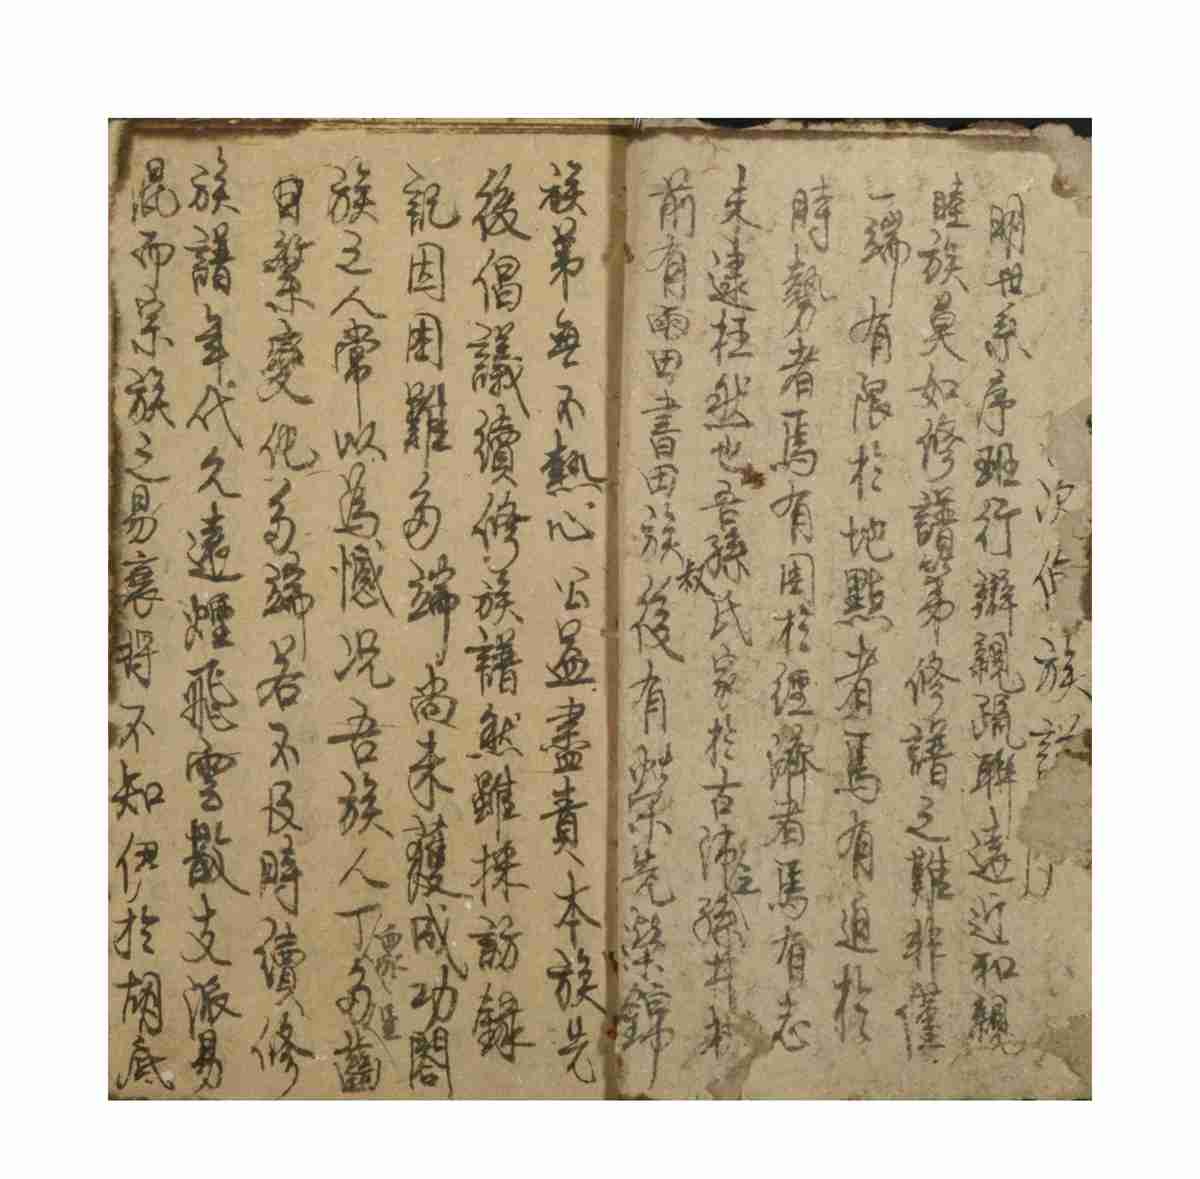 次修族譜
明世系序班行辯親疏聯遠近和親
睦族莫如修譜第修譜之難非僅
一端有限於地點者焉有迫於
時勢者焉有困於經濟者焉有志
未逮枉然也吾孫氏家於古沛孫井村
前有雨田書田族叔後有榮先榮錦
族弟無不熱心公益盡責本族先
後倡議續修族譜然雖採訪錄
記因困難多端尚未獲成功闔
族之人常以為憾況吾族人丁多齒
日繁變化多端若不及時續修
族譜年代久遠煙飛雲散支派易
混而宗族之易衰將不知伊於胡底